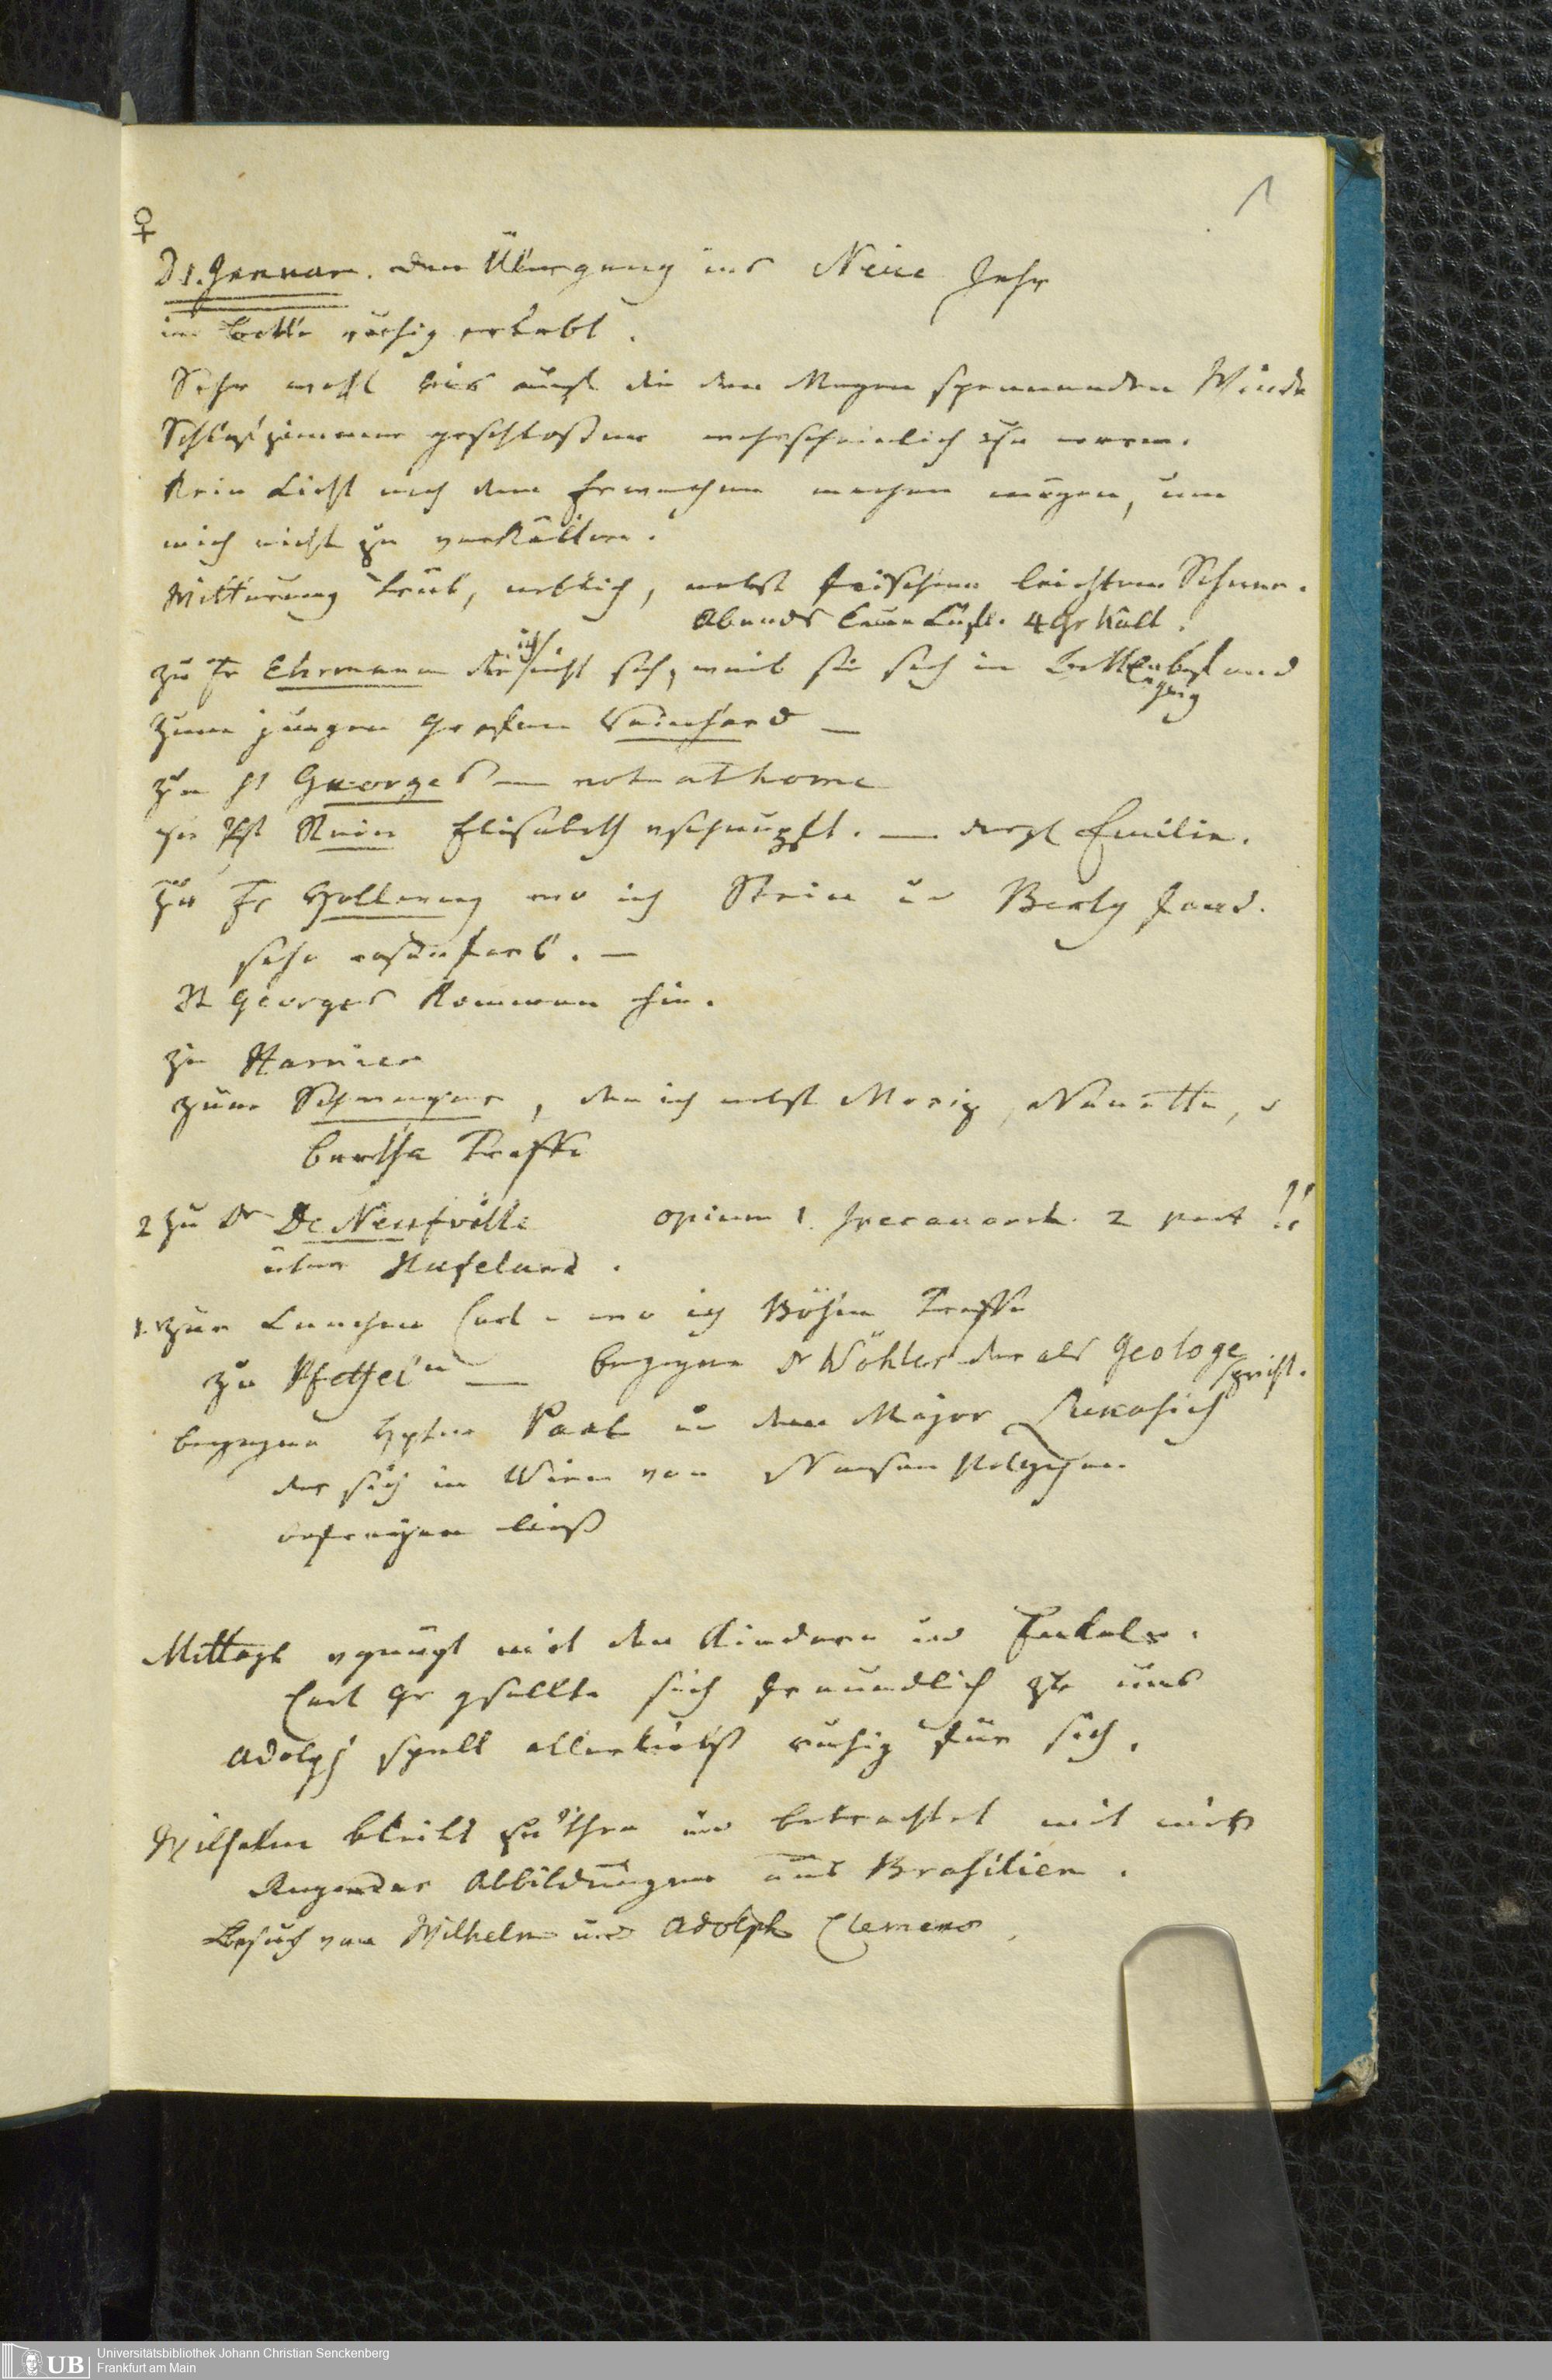 1
♀
D 1. Januar. den Übergang ins Neue Jahr
im Bette ruhig erlebt.
Sehr wohl bis auf die den Magen spannenden Winde
Schlafzimmer geschloßner wahrscheinlich zu warm.
Kein Licht nach dem Erwachen machen mögen, um
mich nicht zu verkälten.
Witterung trüb, neblich, nebst frischem leichtem Schnee.
Abends laue Luft. 4 Gr Kält.
zu Fr Ehrmann die ich nicht sah, weil sie sich in Bette befand
zum jungen Grafen Reinhard —
zu St George's — not at home
zu Stein Elisabeth verschnupft. — dergl Emilie.
zu Fr Holleweg wo ich Stein u Berly fand.
sehr
St Georges kommen hin.
zu Harnier
zum Schwager, den ich nebst Moriz, Nanette, u
Bertha treffe
2 zu Dr De Neufville opium 1. Ipecacuanh. 2 part !!
über Hufeland.
1. zur Lenchen Carl wo ich Böhm treffe
zu Pfeffel — begegne Dr Wöhler der als Geologe spricht.
begegne Hptm Paal u dem Major Lukasich
der sich in Wien von
befreyen ließ
Mittags vergnügt mit den Kindern und Enkeln.
Carl Gr gesellte sich freundlich zu uns
Adolph spielt allerliebst ruhig für sich.
Wilhelm bleibt zu Thee und betrachtet mit mir
Rugendas Abbildungen aus Brasilien.
Besuch von Wilhelm und Adolph Clemens.
UB
Universitätsbibliothek Johann Christian Senckenberg
Frankfurt am Main